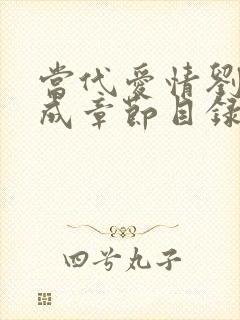 當代愛情劉
成章節目錄
四号丸子